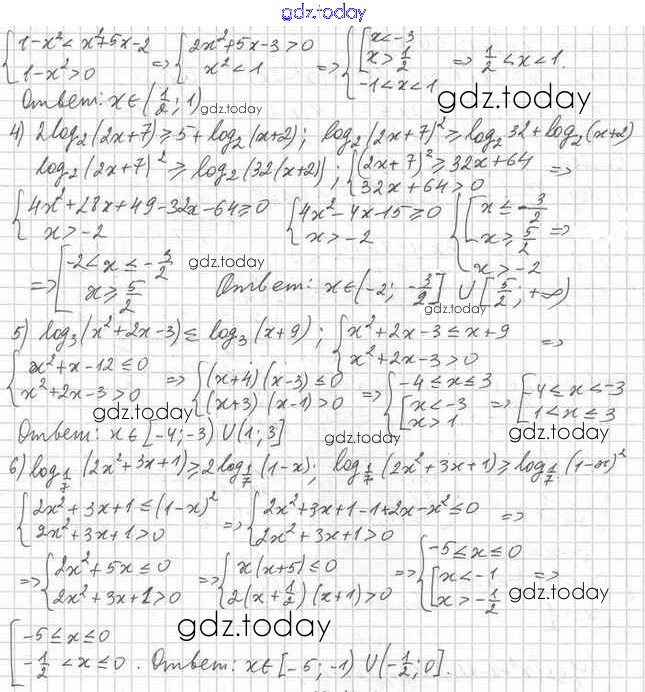 gdz.today
{1-x²<x²+5x-2 ⇒ {2x²+5x-3>0 ⇒ {[x<-3 ⇒ 1/2<x<1.
{1-x²>0 {x²<1 {[x>1/2 {-1<x<1
Ответ: x∈(1/2; 1) gdz.today gdz.today
4) 2log₂(2x+7)≥5+log₂(x+2); log₂(2x+7)²≥log₂32+log₂(x+2)
log₂(2x+7)²≥log₂(32(x+2)); {(2x+7)²≥32x+64 ⇒
{32x+64>0
{4x²+28x+49-32x-64≥0 {4x²-4x-15≥0 {[x≤-3/2 ⇒
{x>-2 {x>-2 {[x≥5/2 {x>-2
⇒ [-2<x≤-3/2 gdz.today Ответ: x∈(-2; -3/2] ∪ [5/2; +∞)
[x≥5/2 gdz.today
5) log₃(x²+2x-3)≤log₃(x+9); {x²+2x-3≤x+9 ⇒
{x²+2x-3>0
{x²+x-12≤0 ⇒ {(x+4)(x-3)≤0 ⇒ {-4≤x≤3 ⇒ [-4≤x<-3
{x²+2x-3>0 {(x+3)(x-1)>0 {[x<-3 [x>1 [1<x≤3
gdz.today gdz.today
Ответ: x∈[-4;-3) ∪ (1; 3]
6) log₁/₇(2x²+3x+1)≥2log₁/₇(1-x); log₁/₇(2x²+3x+1)≥log₁/₇(1-x)²
{2x²+3x+1≤(1-x)² ⇒ {2x²+3x+1-1+2x-x²≤0 ⇒
{2x²+3x+1>0 {2x²+3x+1>0
⇒ {2x²+5x≤0 ⇒ {x(x+5)≤0 ⇒ {-5≤x≤0 ⇒
{2x²+3x+1>0 {2(x+1/2)(x+1)>0 {[x<-1 [x>-1/2 gdz.today
gdz.today
[-5≤x≤0
[-1/2<x≤0. Ответ: x∈[-5; -1) ∪ (-1/2; 0].